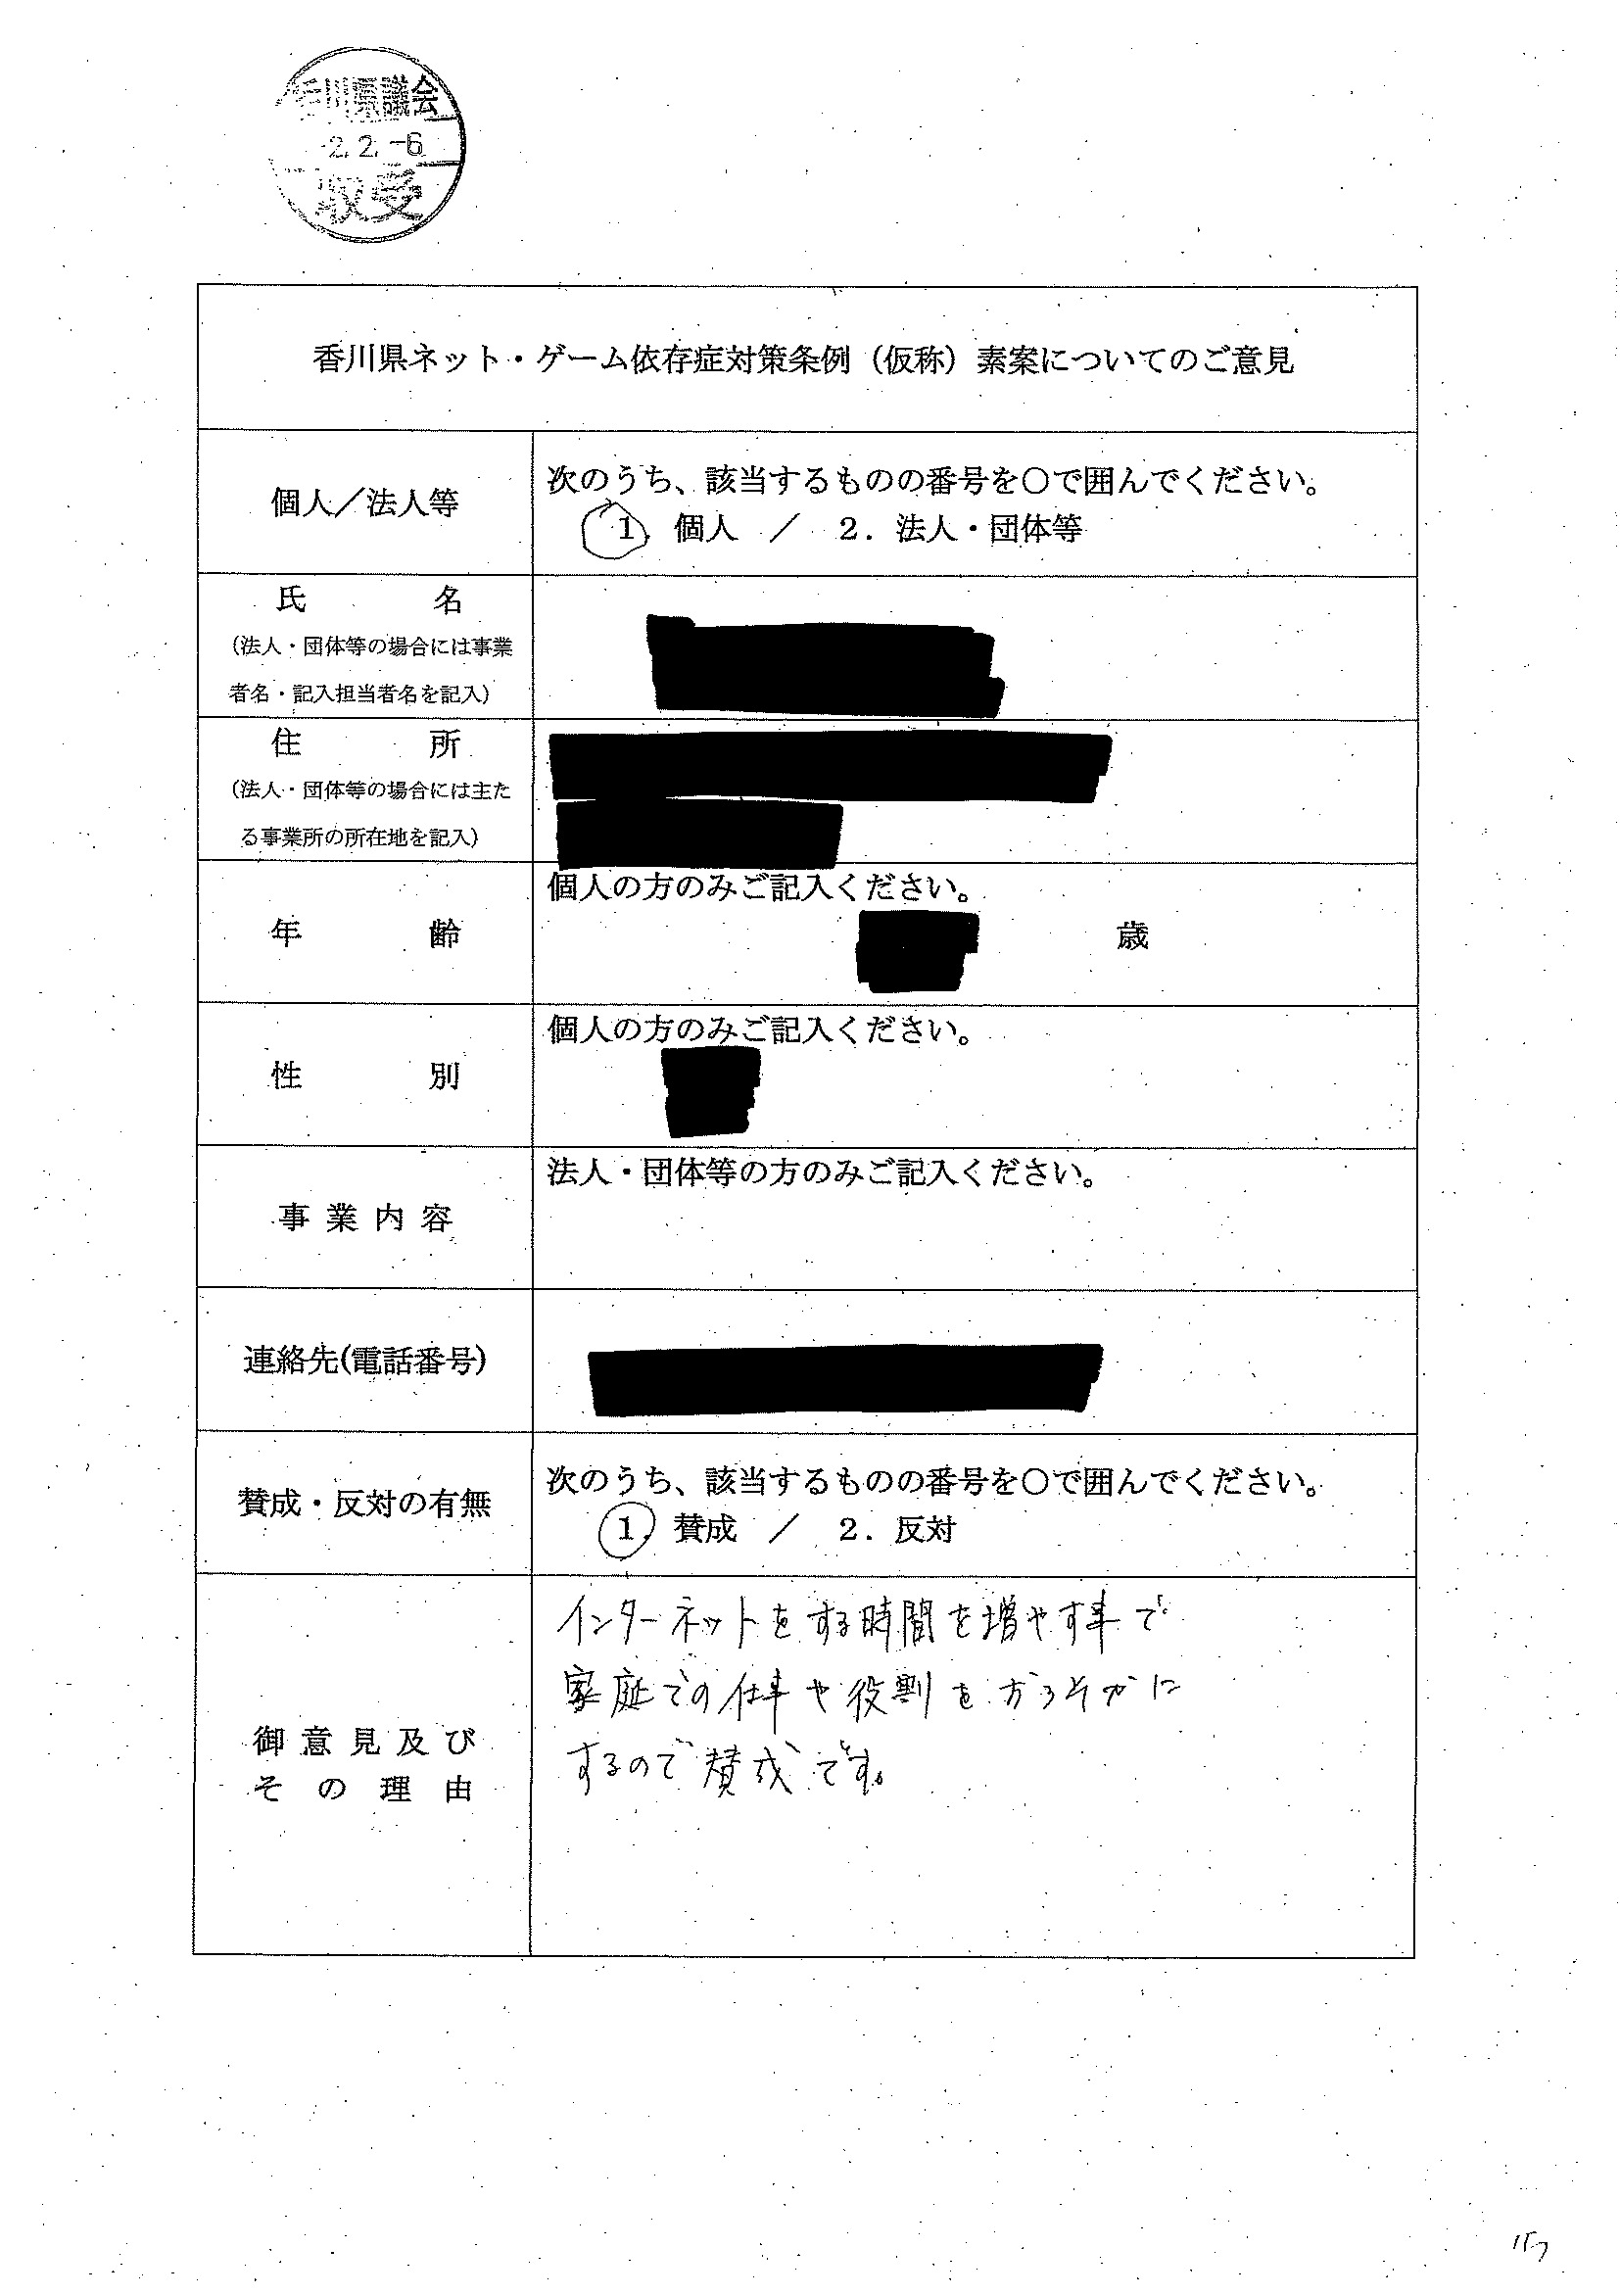 香川県議会
2. 2. -6
収受
香川県ネット・ゲーム依存症対策条例（仮称）素案についてのご意見
個人／法人等
次のうち、該当するものの番号を〇で囲んでください。
1. 個人 ／ 2. 法人・団体等
氏 名
（法人・団体等の場合には事業
者名・記入担当者名を記入）
住 所
（法人・団体等の場合には主た
る事業所の所在地を記入）
年 齢
個人の方のみご記入ください。
歳
性 別
個人の方のみご記入ください。
事 業 内 容
法人・団体等の方のみご記入ください。
連絡先(電話番号)
賛成・反対の有無
次のうち、該当するものの番号を〇で囲んでください。
1. 賛成 ／ 2. 反対
御 意 見 及 び
そ の 理 由
インターネットをする時間を増やす事で
家庭での仕事や役割をおろそかに
するので賛成です。